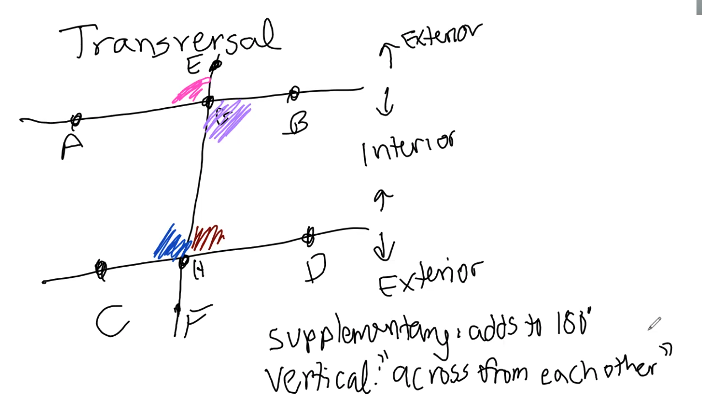 Transversal
E
Exterior
G
B
A
Interior
H
D
C
F
Exterior
supplementary: adds to 180°
vertical: "across from each other"